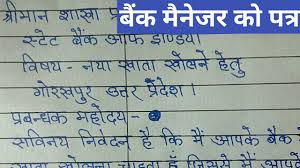 बैंक मैनेजर को पत्र
श्रीमान शाखा प्र
स्टेट बैंक आफ इण्डिया
विषय - नया खाता खोलने हेतु
गोरखपुर उत्तर प्रदेश ।
प्रबन्धक महोदय -
सविनय निवेदन है कि मैं आपके बैंक
खाता खोलना चाहता हूँ जिसमें मैं